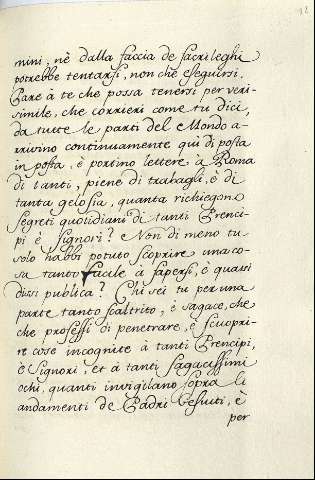 12
mini, nè dalla faccia de sacrileghi
potrebbe tentarsi, non che eseguirsi.
Pare à te che possa tenersi per veri-
simile, che corrieri come tu dici,
da tutte le parti del Mondo a-
rivino continuamente qui di posta
in posta, è portino lettere à Roma
di tanti, piene di trabagli, è di
tanta gelosia, quanta richiegono
segreti quotidiani di tanti Prenci-
pi è Signori? e Non di meno tu
solo habbi potuto scoprire una co-
sa tanto facile à sapersi, è quasi
dissi publica? Chi sei tu per una
parte tanto scaltrito, è sagace, che
che professi di penetrare, è scuopri-
re cose incognite à tanti Prencipi,
è Signori, et à tanti sagacissimi
ochi, quanti invigilano sopra li
andamenti de Padri Gesuiti, è
per